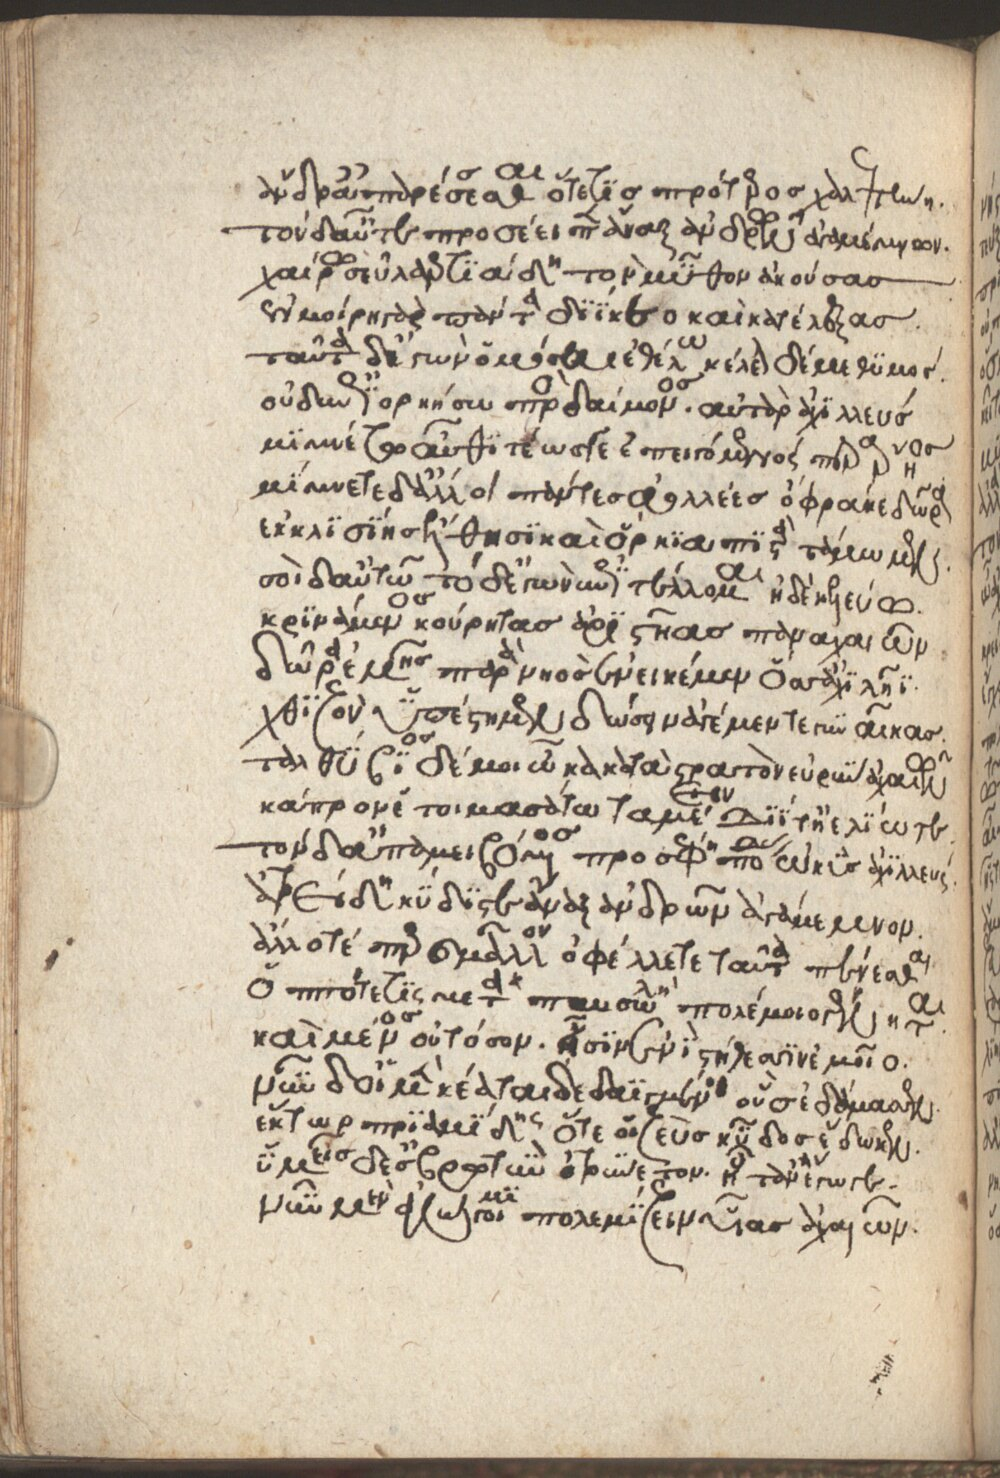 ἄνδρ' ἀπαρέσσασθαι ὅτε τις πρότερος χαλεπήνῃ.
τὸν δ' αὖτε προσέειπεν ἄναξ ἀνδρῶν ἀγαμέμνων.
χαίρω σεῦ λαερτιάδη τὸν μῦθον ἀκούσας
ἐν μοίρῃ γὰρ πάντα διΐκεο καὶ κατέλεξας.
ταῦτα δ' ἐγὼν ὀμόσαι ἐθέλω κέλεται δέ με θυμός.
οὐδ' ἐπιορκήσω πρὸς δαίμονος. αὐτὰρ ἀχιλλεύς
μιμνέτω αὖθι τέως γε ἐπειγόμενός περ ἄρηος
μίμνετε δ' ἄλλοι πάντες ἀολλέες ὄφρά κε δῶρα
ἐκ κλισίης ἔλθῃσι καὶ ὅρκια πιστὰ τάμωμεν.
σοὶ δ' αὐτῷ τόδ' ἐγὼν ἐπιτέλλομαι ἠδὲ κελεύω.
κρινάμενος κούρητας ἀριστῆας παναχαιῶν
δῶρα ἐμῆς παρὰ νηὸς ἐνεικέμεν ὅσσ' ἀχιλῆϊ.
χθιζὸν ὑπέστημεν δώσειν ἀγέμεν τε γυναῖκας.
ταλθύβιος δέ μοι ὦκα κατὰ στρατὸν εὐρὺν ἀχαιῶν
κάπρον ἑτοιμασάτω ταμέειν Διΐ τ' ἠελίῳ τε.
τὸν δ' ἀπαμειβόμενος προσέφη πόδας ὠκὺς ἀχιλλεύς.
ἀτρείδη κύδιστε ἄναξ ἀνδρῶν ἀγάμεμνον.
ἄλλοτέ περ καὶ μᾶλλον ὀφέλλετε ταῦτα πένεσθαι
ὁππότε τις μεταπαυσωλὴ πολέμοιο γένηται.
καὶ μένος οὐ τόσον. ᾖσιν ἐνὶ στήθεσσιν ἐμοῖσι.
νῦν δ' οἱ μὲν κέαται δεδαϊγμένοι οὓς ἐδάμασσεν.
ἕκτωρ πριαμίδης ὅτε οἱ ζεὺς κῦδος ἔδωκεν.
ὑμεῖς δ' ἐς βρωτὺν ὀτρύνετον. ἦ τ' ἂν ἔγωγε.
νῦν μὲν ἀνώγοιμι πολεμίζειν υἷας ἀχαιῶν.